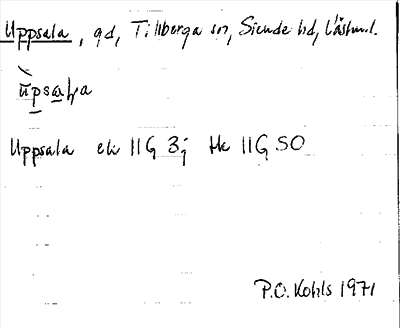 Uppsala, gd, Tillberga sn, Siende hd, Västml.
ùpsaḷa
Uppsala ek 11G 3j tk 11G SO
P.O. Kohls 1971